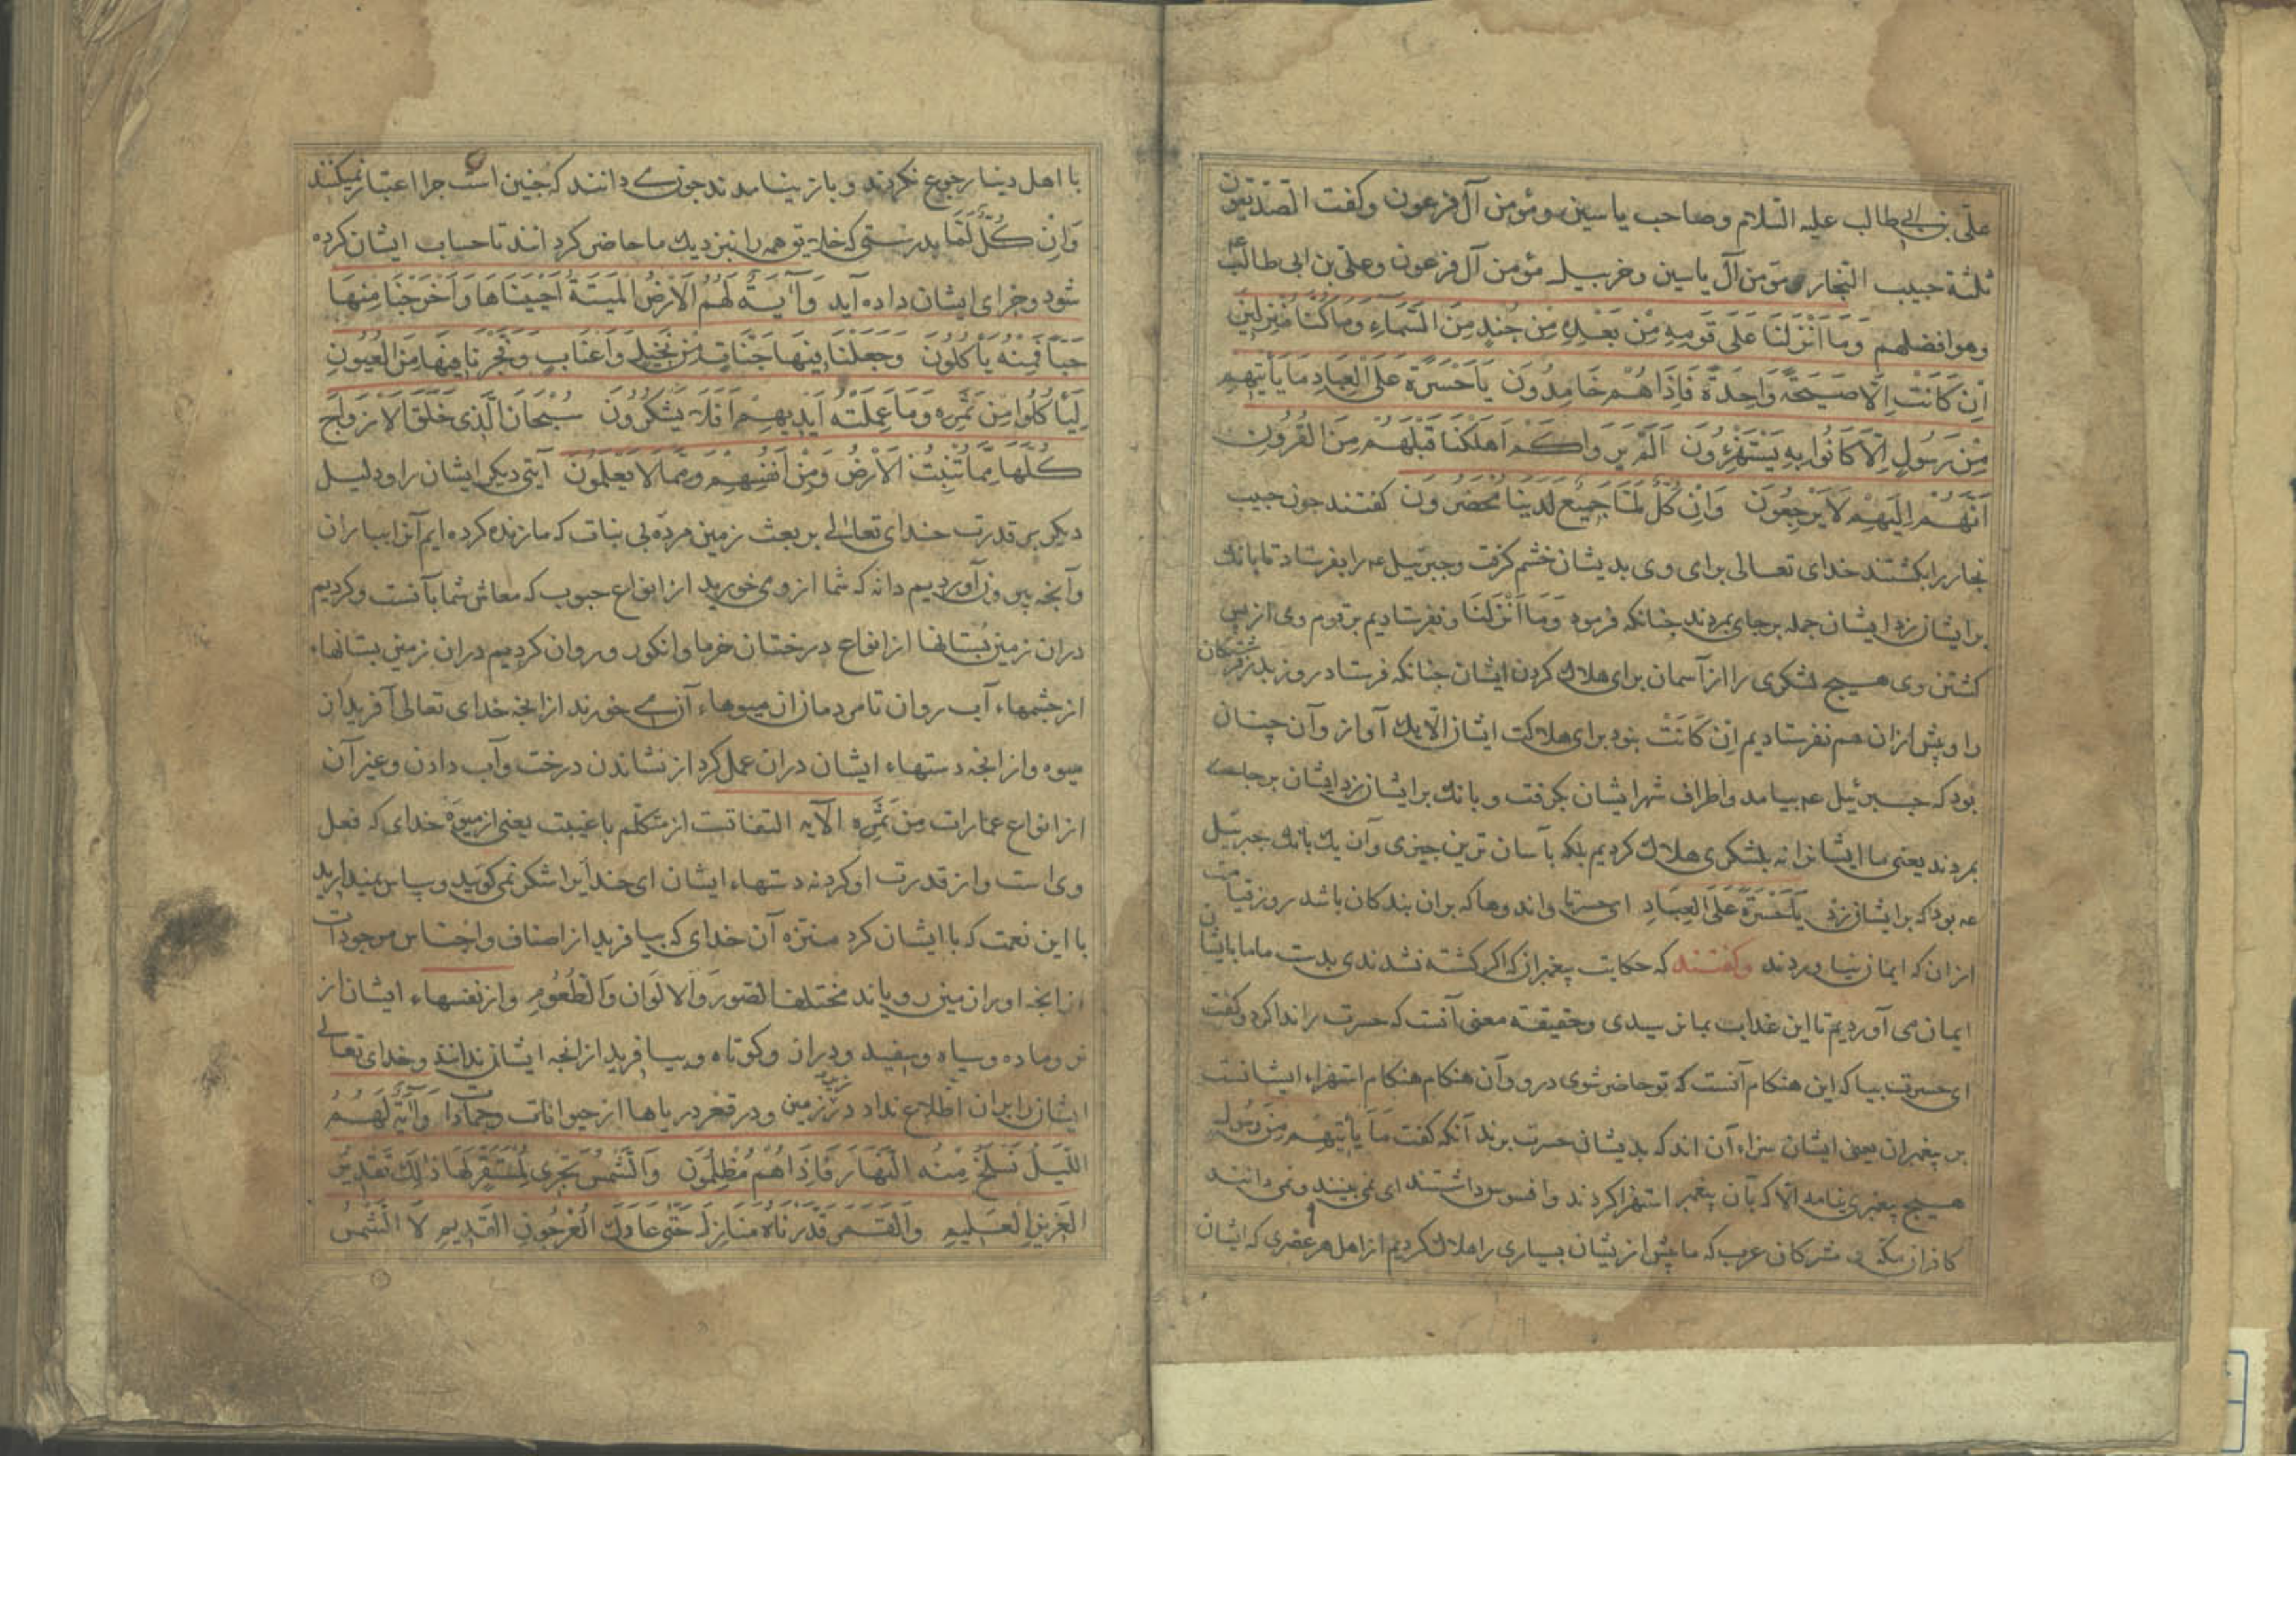 علی بن ابی طالب علیه السلام و صاحب یاسین و مؤمن آل فرعون و کفت الصدیقون
ثلثة حبیب النجار مؤمن آل یاسین و خربیل مؤمن آل فرعون و علی بن ابی طالب
وهو افضلهم وَمَا اَنْزَلنَا عَلَی قَومِهِ مِنْ بَعْدِهِ مِن جُندٍ مِنَ السَّمَاءِ وَمَا کُنَّا مُنزِلِینَ
اِن کَانَتْ اِلَّا صَیحَةً وَاحِدَةً فَاِذَا هُمْ خَامِدُونَ یَا حَسْرَةً عَلَی العِبَادِ مَا یَأتِیهِم
مِنْ رَسُولٍ اِلَّا کَانُوا بِهِ یَسْتَهْزِؤُنَ اَلَمْ یَرَوا کَمْ اَهلَکنَا قَبْلَهُمْ مِنَ القُرُونِ
اَنَّهُمْ اِلَیهِمْ لَا یَرْجِعُونَ وَاِن کُلٌّ لَمَّا جَمِیعٌ لَدَینَا مُحْضَرُونَ کفتند جون حبیب
نجار را بکشتند خدای تعالی برای وی بدیشان خشم کرفت و جبرئیل عم را بفرستاد تا بانک
بر ایشان زد ایشان جمله بر جای بمردند جنانکه فرمود وَمَا اَنْزَلنَا و نفرستادیم بر قوم وی از پس
کشتن وی هیج لشکری را از آسمان برای هلاک کردن ایشان جنانکه فرستاد روز بدر فرشتکان
را و پیش ازان هم نفرستادیم اِن کَانَتْ نبود برای هلاکت ایشان الا یک آواز و آن چنان
بود که جبرئیل عم بیامد و اطراف شهر ایشان بکرفت و بانک بر ایشان زد ایشان بر جای
بمردند یعنی ما ایشانرا نه بلشکری هلاک کردیم بلکه بآسان ترین جیزی و آن یک بانک جبرئیل
عم بود که بر ایشان زد یَا حَسْرَةً عَلَی العِبَادِ ای حسرتا و اندوها که بران بندکان باشد روز قیامت
ازان که ایمان نیاوردند و کفتند که حکایت پیغمبران که اکر کشته نشدندی بدست ما ما بایشان
ایمان می آوردیم تا این عذاب بما نرسیدی و حقیقة معنی آنست که حسرت را ندا کرد و کفت
ای حسرت بیا که این هنکام آنست که تو حاضر شوی درو و آن هنکام هنکام استهزاء ایشانست
بر پیغمبران یعنی ایشان سزاء آن اند که بدیشان حسرت برند آنکه کفت مَا یَأتِیهِم مِن رَسُولٍ
هیج پیغمبری نیامد الا که بآن پیغمبر استهزا کردند و افسوس داشتند ای نمی بینند و نمی دانند
کافران مکه و مشرکان عرب که ما پیش ازیشان بسیاری را هلاک کردیم از اهل هر عصری که ایشان
با اهل دنیا رجوع نکردند و باز نیامدند جون می دانند که جنین است جرا اعتبار نمیکنند
وَاِنْ کُلٌّ لَمَّا بدرستی که خلایق همه را بنزدیک ما حاضر کردانند تا حساب ایشان کرده
شود و جزای ایشان داده آید وَآیَةٌ لَهُمُ الاَرْضُ المَیتَةُ اَحْیَینَاهَا وَاَخْرَجْنَا مِنْهَا
حَبّاً فَمِنهُ یَأْکُلُونَ وَجَعَلنَا فِیهَا جَنَّاتٍ مِنْ نَخِیلٍ وَاَعْنَابٍ وَفَجَّرْنَا فِیهَا مِنَ العُیُونِ
لِیَأکُلُوا مِنْ ثَمَرِه وَمَا عَمِلَتْهُ اَیْدِیهِمْ اَفَلَا یَشْکُرُونَ سُبْحَانَ الَّذِی خَلَقَ الاَزْوَاجَ
کُلَّهَا مِمَّا تُنْبِتُ الاَرْضُ وَمِنْ اَنْفُسِهِمْ وَمِمَّا لَا یَعْلَمُونَ آیتی دیکر ایشان را و دلیل
دیکر بر قدرت خدای تعالی بر بعث زمین مرده بی نبات که ما زنده کرده ایم آنرا بباران
و آنجه بیرون آوردیم دانه که شما از وی خورید از انواع حبوب که معاش شما بآنست و کردیم
دران زمین بستانها از انواع درختان خرما و انکور و روان کردیم دران زمین بستانهاء
از جشمهاء آب روان تا مردمان ازان میوهاء آن می خورند از انجه خدای تعالی آفرید ازان
میوه و از انجه دستهاء ایشان دران عمل کرد از نشاندن درخت و آب دادن و غیر آن
از انواع عمارات مِن ثَمَرِه الآیه التفاتست از متکلم با غیبت یعنی از میوهٔ خدای که فعل
وی است و از قدرت او کرد نه دستهاء ایشان ای خدایرا شکر نمی کویید و سپاس نمیدارید
با این نعمت که با ایشان کرد منزه آن خدای که بیافرید از اصناف و اجناس موجودات
از انجه او از زمین رویاند مختلف الصور وَالالوَان وَالطُعُوم و از نفسهاء ایشان از
نر و ماده و سیاه و سپید و دراز و کوتاه و بیافرید از انجه ایشان ندانند و خدای تعالی
ایشان را بران اطلاع نداد در زیر زمین و در قعر دریاها از حیوانات و جمادات وَآیَةٌ لَهُمُ
اللَّیلُ نَسْلَخُ مِنْهُ النَّهَارَ فَاِذَا هُمْ مُظْلِمُونَ وَالشَّمْسُ تَجْرِی لِمُسْتَقَرٍّ لَهَا ذٰلِکَ تَقْدِیرُ
العَزِیزِ العَلِیمِ وَالقَمَرَ قَدَّرْنَاهُ مَنَازِلَ حَتّٰی عَادَ کَالعُرْجُونِ القَدِیمِ لَا الشَّمْسُ